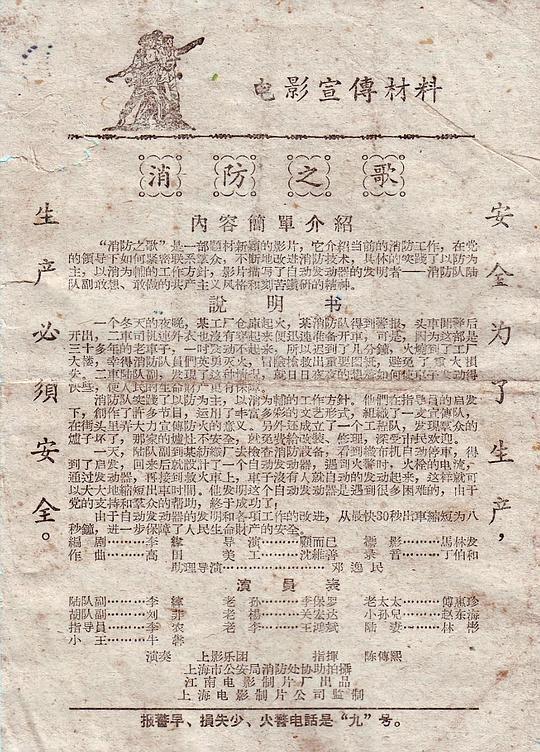 电影宣傳材料
消防之歌
安全为了生产，
生产必須安全。
內容簡單介紹
“消防之歌”是一部題材新穎的影片，它介紹当前的消防工作，在党
的領导下如何紧密联系羣众，不断地改进消防技术，具体的实践了以防为
主，以消为輔的工作方針，影片描写了自动发动器的发明者——消防队陆
队副敢想、敢做的共产主义风格和刻苦鑽研的精神。
說明书
一个冬天的夜晚，某工厂仓庫起火，某消防队得到警报，头車開警后
开出，二車司机連外衣也沒有穿起来便迅速准备开車，可是，因为这部
三十多年的老車子，一时发动不起来，所以迟到了几分鐘，火燒到了工厂
大楼，幸得消防队員們英勇灭火，冒險搶救出重要图紙，避免了重大損
失。二車陆队副，发現了这种情况，成日日夜夜的想着如何使車子发动得
快些，使人民的生命財产更有保障。
消防队实践了以防为主，以消为輔的工作方針。他們在指导員的启发
下，創作了許多节目，运用了丰富多彩的文艺形式，組織了一支宣傳队，
在街头里弄大力宣傳防火的意义。另外还成立了一个工程队，发現羣众的
爐子坏了，那家的爐灶不安全，就免費給改装、修理，深受市民欢迎。
一天，陆队副到某紡織厂去检查消防設备，看到織布机自动停車，得
到了启发，回来后就設計了一个自动发动器，遇到火警时，火栓的电流，
通过发动器，再接到救火車上，車子沒有人就自动的发动起来，这样就可
以大大地縮短出車时間。他发明这个自动发动器是遇到很多困难的，由于
党的支持和羣众的帮助，終于成功了！
由于自动发动器的发明和各項工作的改进，从最快30秒出車縮短为八
秒鐘，进一步保障了人民生命財产的安全。
編劇………李緯 导演………顧而已 攝影………馬林发
作曲………高田 美工………沈維善 录音………丁伯和
助理导演………………邓逸民
演員表
陆队副………李緯 老孙………李保罗 老太太………傅惠珍
胡队副………刘非 老楊………关宏达 小孙兒………赵东海
指导員………李农 老李………王鴻斌 陆妻………林彬
小王………牛犇
演奏 上影乐团 指揮 陈傳熙
上海市公安局消防处协助拍攝
江南电影制片厂出品
上海电影制片公司监制
报警早、損失少、火警电話是“九”号。